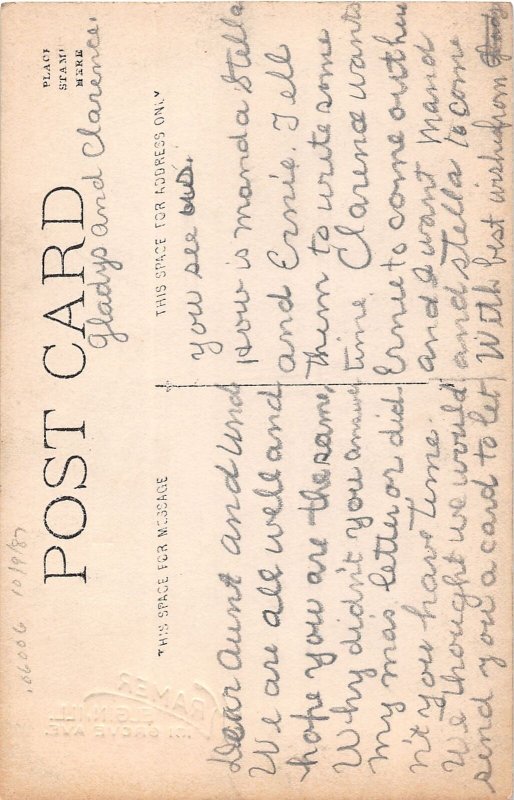 POST CARD
PLACE
STAMP
HERE
THIS SPACE FOR MESSAGE
THIS SPACE FOR ADDRESS ONLY
Dear Aunt and Uncl
We are all well and
hope you are the same,
Why didn't you answer
my ma's letter or did
n't you have time.
We thought we would
send you a card to let
you see us.
How is manda Stella
and Ernie. Tell
them to write some
time. Clarence wants
Ernie to come out here
and I want Mand
and Stella to come
With best wishes from
Gladys and Clarence.
06006 10/9/87
KRAMER
ELGIN, ILL.
GROVE AVE.